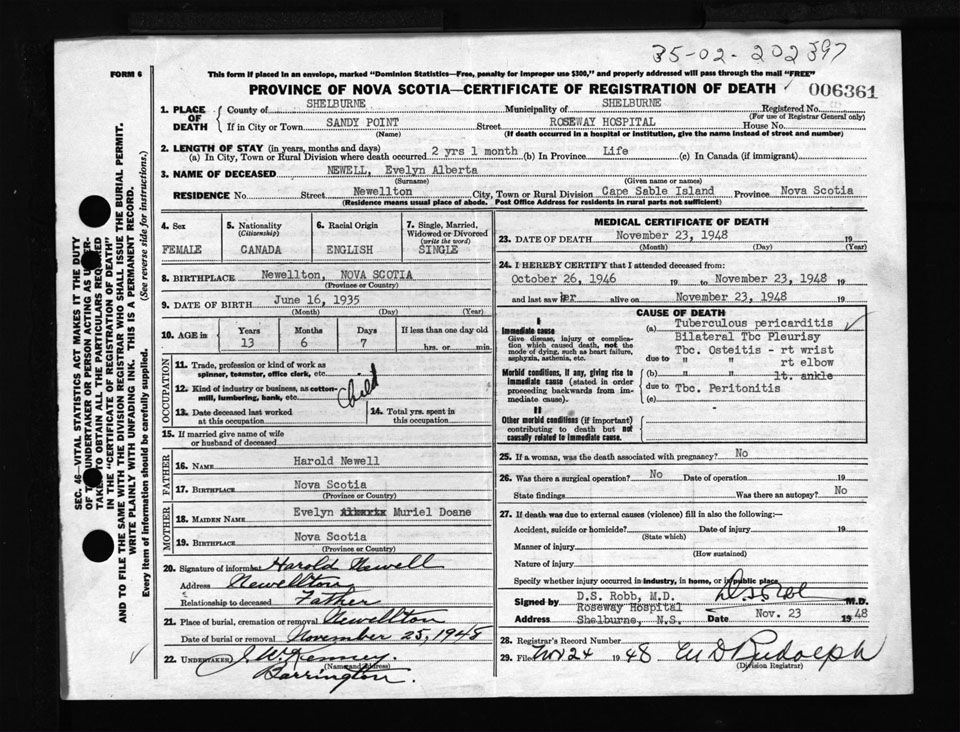 35-02-202397
FORM 6
This form if placed in an envelope, marked "Dominion Statistics—Free, penalty for improper use $300," and properly addressed will pass through the mail "FREE"
PROVINCE OF NOVA SCOTIA—CERTIFICATE OF REGISTRATION OF DEATH
006361
1. PLACE OF DEATH
County of SHELBURNE Municipality of SHELBURNE Registered No.
(For use of Registrar General only)
If in City or Town SANDY POINT Street ROSEWAY HOSPITAL House No.
(Name) (If death occurred in a hospital or institution, give the name instead of street and number)
2. LENGTH OF STAY (in years, months and days)
(a) In City, Town or Rural Division where death occurred 2 yrs 1 month (b) In Province Life (c) In Canada (if immigrant)
3. NAME OF DECEASED NEWELL, Evelyn Alberta
(Surname) (Given name or names)
RESIDENCE No. Street Newellton City, Town or Rural Division Cape Sable Island Province Nova Scotia
(Residence means usual place of abode. Post Office Address for residents in rural parts not sufficient)
4. Sex
FEMALE
5. Nationality
(Citizenship)
CANADA
6. Racial Origin
ENGLISH
7. Single, Married, Widowed or Divorced
(write the word)
SINGLE
8. BIRTHPLACE Newellton, NOVA SCOTIA
(Province or Country)
9. DATE OF BIRTH June 16, 1935
(Month) (Day) (Year)
10. AGE in
Years Months Days If less than one day old
13 6 7 hrs. or min.
OCCUPATION
11. Trade, profession or kind of work as
spinner, teamster, office clerk, etc.
12. Kind of industry or business, as cotton-
mill, lumbering, bank, etc.
Child
13. Date deceased last worked
at this occupation
14. Total yrs. spent in
this occupation
15. If married give name of wife
or husband of deceased
FATHER
16. NAME Harold Newell
17. BIRTHPLACE Nova Scotia
(Province or Country)
MOTHER
18. MAIDEN NAME Evelyn Muriel Doane
19. BIRTHPLACE Nova Scotia
(Province or Country)
20. Signature of informant Harold Newell
Address Newellton
Relationship to deceased Father
21. Place of burial, cremation or removal Newellton
Date of burial or removal November 25, 1948
22. UNDERTAKER J. W. Kenney.
(Name and address)
Barrington.
MEDICAL CERTIFICATE OF DEATH
23. DATE OF DEATH November 23, 1948 19
(Month) (Day) (Year)
24. I HEREBY CERTIFY that I attended deceased from:
October 26, 1946 19 to November 23, 1948 19
and last saw her alive on November 23, 1948 19
CAUSE OF DEATH
I
Immediate cause
Give disease, injury or complica-
tion which caused death, not the
mode of dying, such as heart failure,
asphyxia, asthenia, etc.
(a) Tuberculous pericarditis
Bilateral Tbc Pleurisy
due to Tbc. Osteitis - rt wrist
" " - rt elbow
Morbid conditions, if any, giving rise to
immediate cause (stated in order
proceeding backwards from im-
mediate cause).
(b) " " lt. ankle
due to Tbc. Peritonitis
(c)
II
Other morbid conditions (if important)
contributing to death but not
causally related to immediate cause.
25. If a woman, was the death associated with pregnancy? No
26. Was there a surgical operation? No Date of operation 19
State findings Was there an autopsy? No
27. If death was due to external causes (violence) fill in also the following:—
Accident, suicide or homicide? Date of injury 19
(State which)
Manner of injury
(How sustained)
Nature of injury
Specify whether injury occurred in industry, in home, or in public place
Signed by D.S. Robb, M.D. D.S. Robb M.D.
Roseway Hospital
Address Shelburne, N.S. Date Nov. 23 1948
28. Registrar's Record Number
29. Filed Nov 24 1948 M D Rudolph
(Division Registrar)
SEC. 46—VITAL STATISTICS ACT MAKES IT THE DUTY
OF THE UNDERTAKER OR PERSON ACTING AS UNDER-
TAKER TO OBTAIN ALL THE PARTICULARS REQUIRED
IN THE "CERTIFICATE OF REGISTRATION OF DEATH"
AND TO FILE THE SAME WITH THE DIVISION REGISTRAR WHO SHALL ISSUE THE BURIAL PERMIT.
WRITE PLAINLY WITH UNFADING INK. THIS IS A PERMANENT RECORD.
Every item of information should be carefully supplied. (See reverse side for instructions.)